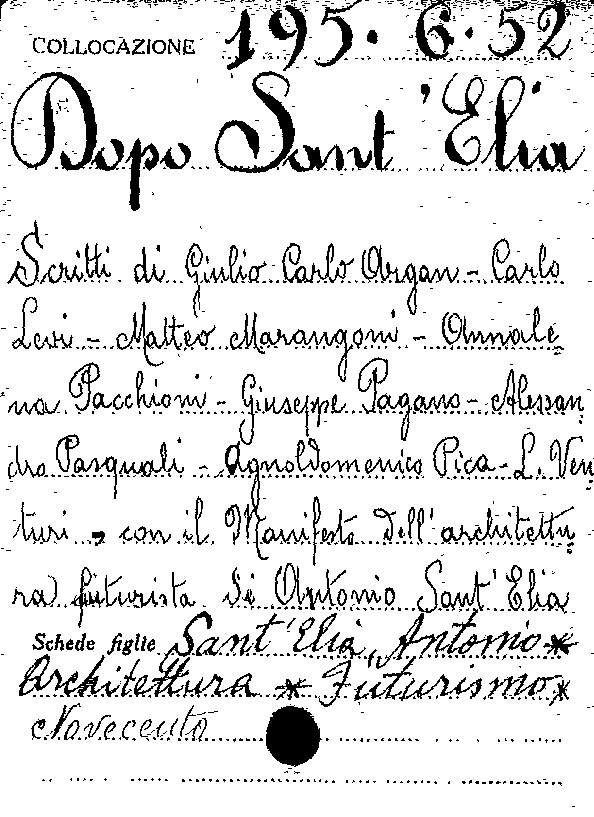 COLLOCAZIONE 195. 6. 52
Dopo Sant'Elia
Scritti di Giulio Carlo Argan - Carlo
Levi - Matteo Marangoni - Annale=
na Pacchioni - Giuseppe Pagano - Alessan=
dro Pasquali - Agnoldomenico Pica - L. Ven=
turi, con il Manifesto dell'architettu=
ra futurista di Antonio Sant'Elia
Schede figlie Sant'Elia, Antonio *
Architettura * Futurismo *
Novecento